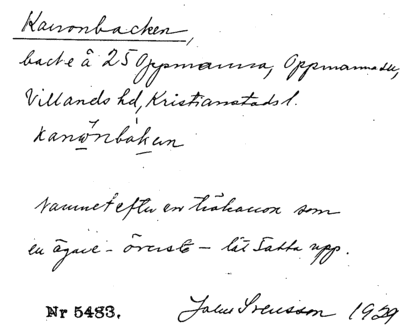 Kanonbacken,
backe å 25 Oppmanna, Oppmanna sn,
Villands hd, Kristianstads l.
kanȯnbakẹn
Namnet efter en träkanon som
en ägare – överste – lät sätta upp.
Nr 5483. John Svensson 1929